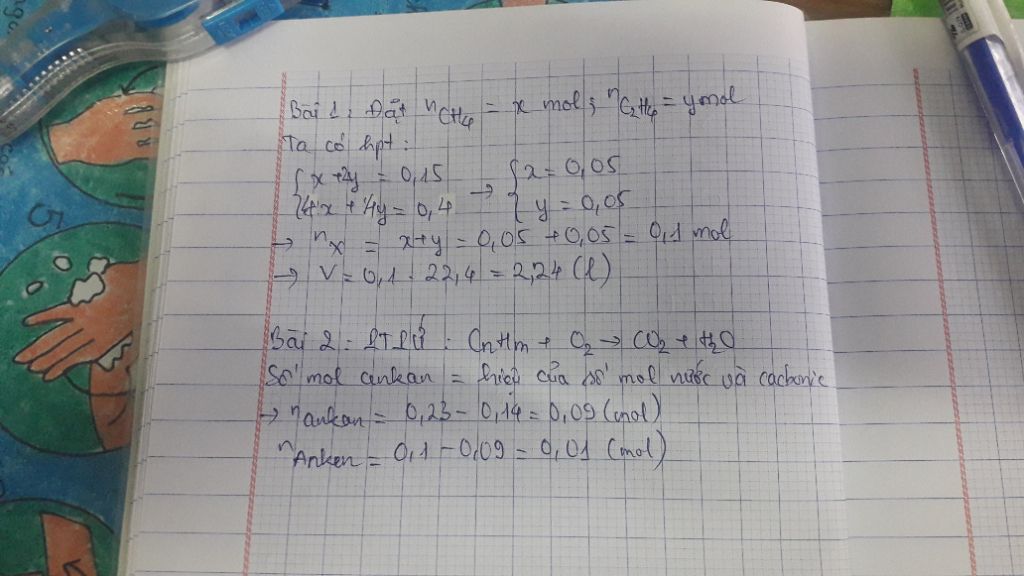 Bài 1: Đặt nCH4 = x mol; nC2H4 = y mol
Ta có hpt:
{x + 2y = 0,15 → {x = 0,05
{4x + 4y = 0,4 { y = 0,05
→ nX = x+y = 0,05 + 0,05 = 0,1 mol
→ V = 0,1 . 22,4 = 2,24 (l)
Bài 2: PTPƯ: CnHm + O2 → CO2 + H2O
Số mol ankan = hiệu của số mol nước và cacbonic
→ nankan = 0,23 - 0,14 = 0,09 (mol)
nAnken = 0,1 - 0,09 = 0,01 (mol)
5